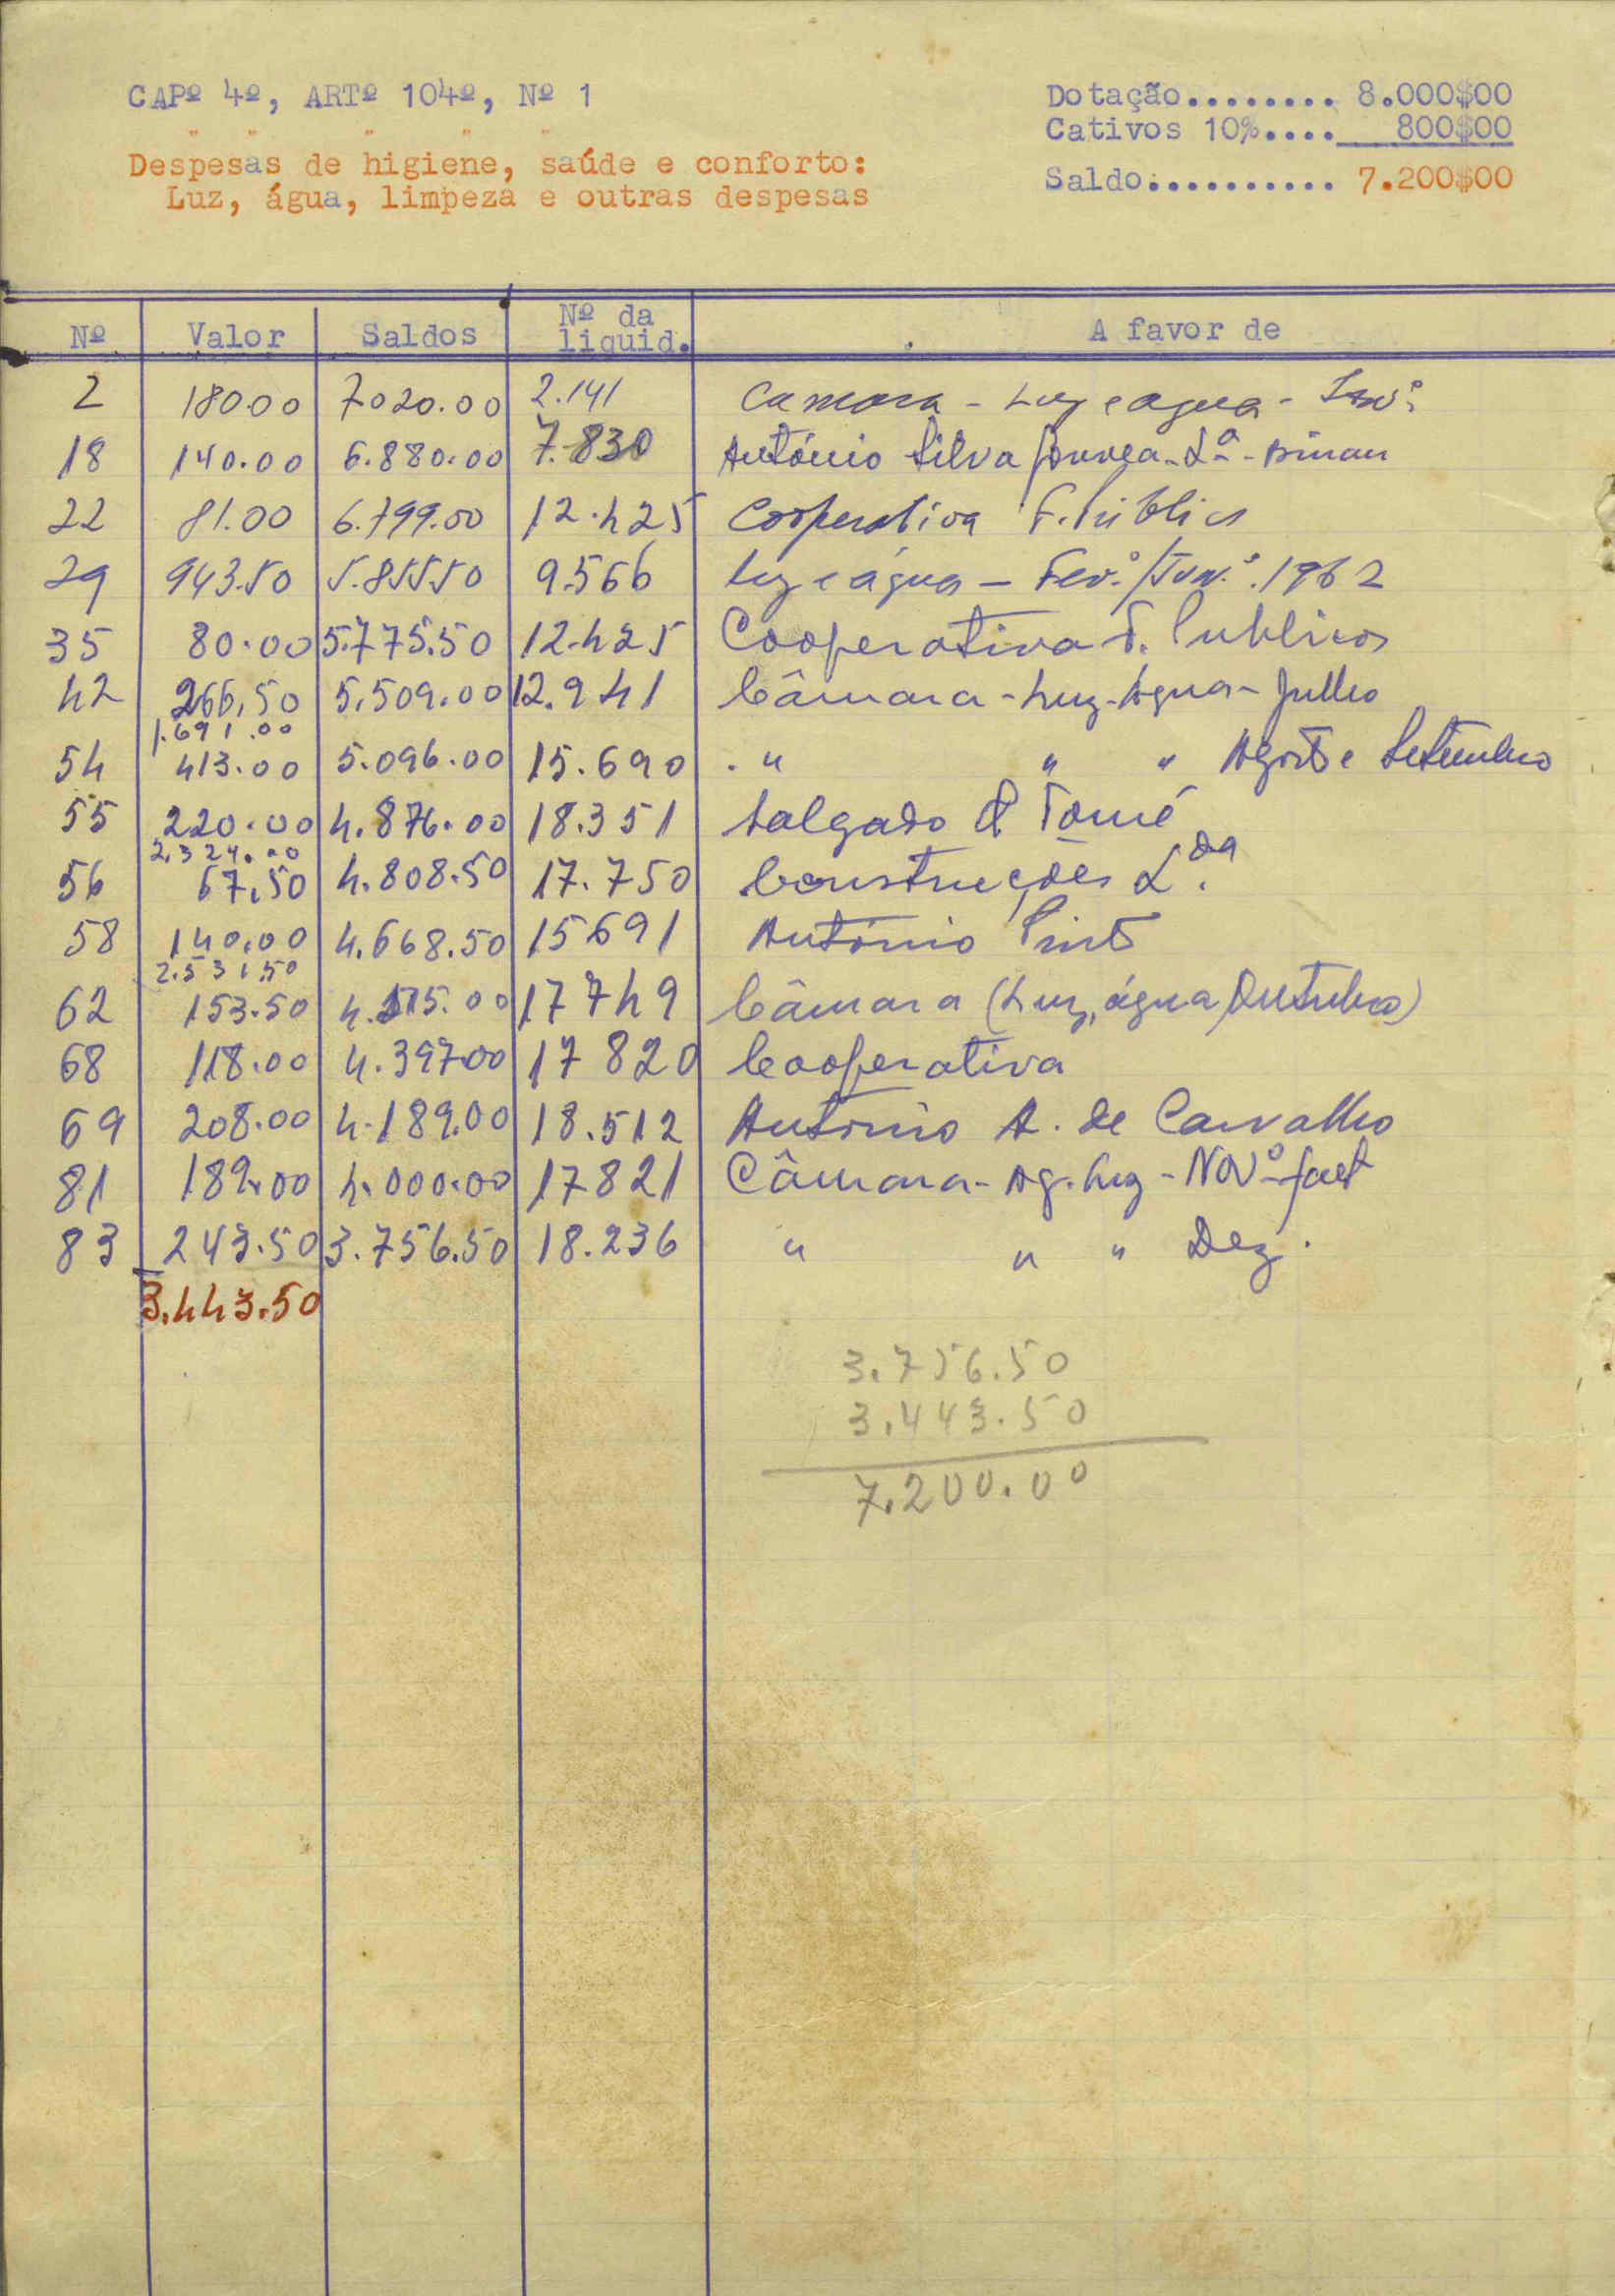 CAPº 4º, ARTº 104º, Nº 1
Dotação........ 8.000$00
Cativos 10%.... 800$00
Despesas de higiene, saúde e conforto:
Luz, água, limpeza e outras despesas
Saldo.......... 7.200$00
Nº Valor Saldos Nº da liquid. A favor de
2 180.00 7020.00 2.141 Camara - Luz e agua - Janº
18 140.00 6.880.00 7.830 António Silva Gouvea - Lª -
22 81.00 6.799.00 12.425 Cooperativa F. Públicos
29 943.50 5.855.50 9.566 Luz e água - Fev.º/Jun.º.1962
35 80.00 5.775.50 12.425 Cooperativa F. Publicos
42 266,50 5.509.00 12.941 Câmara - Luz - Agua - Julho
1.691.00
54 413.00 5.096.00 15.690 . " " " Agosto e Setembro
55 220.00 4.876.00 18.351 Salgado & Tomé
2.324.00
56 67,50 4.808.50 17.750 Construções Lda.
58 140,00 4.668.50 15691 António Pinto
2.531.50
62 153.50 4.515.00 17749 Câmara (Luz, água, Outubro)
68 118.00 4.397.00 17820 Cooperativa
69 208.00 4.189.00 18.512 António A. de Carvalho
81 189.00 4.000.00 17821 Câmara - Ag. Luz - NOVº-
83 243.50 3.756.50 18.236 " " " Dez.
3.443.50
3.756.50
3.443.50
7.200.00